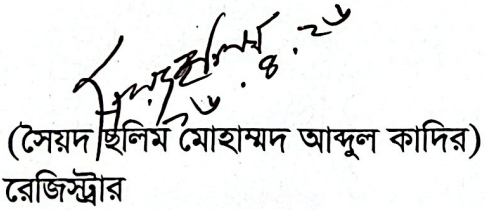 (সৈয়দ ছলিম মোহাম্মদ আব্দুল কাদির)
রেজিস্ট্রার